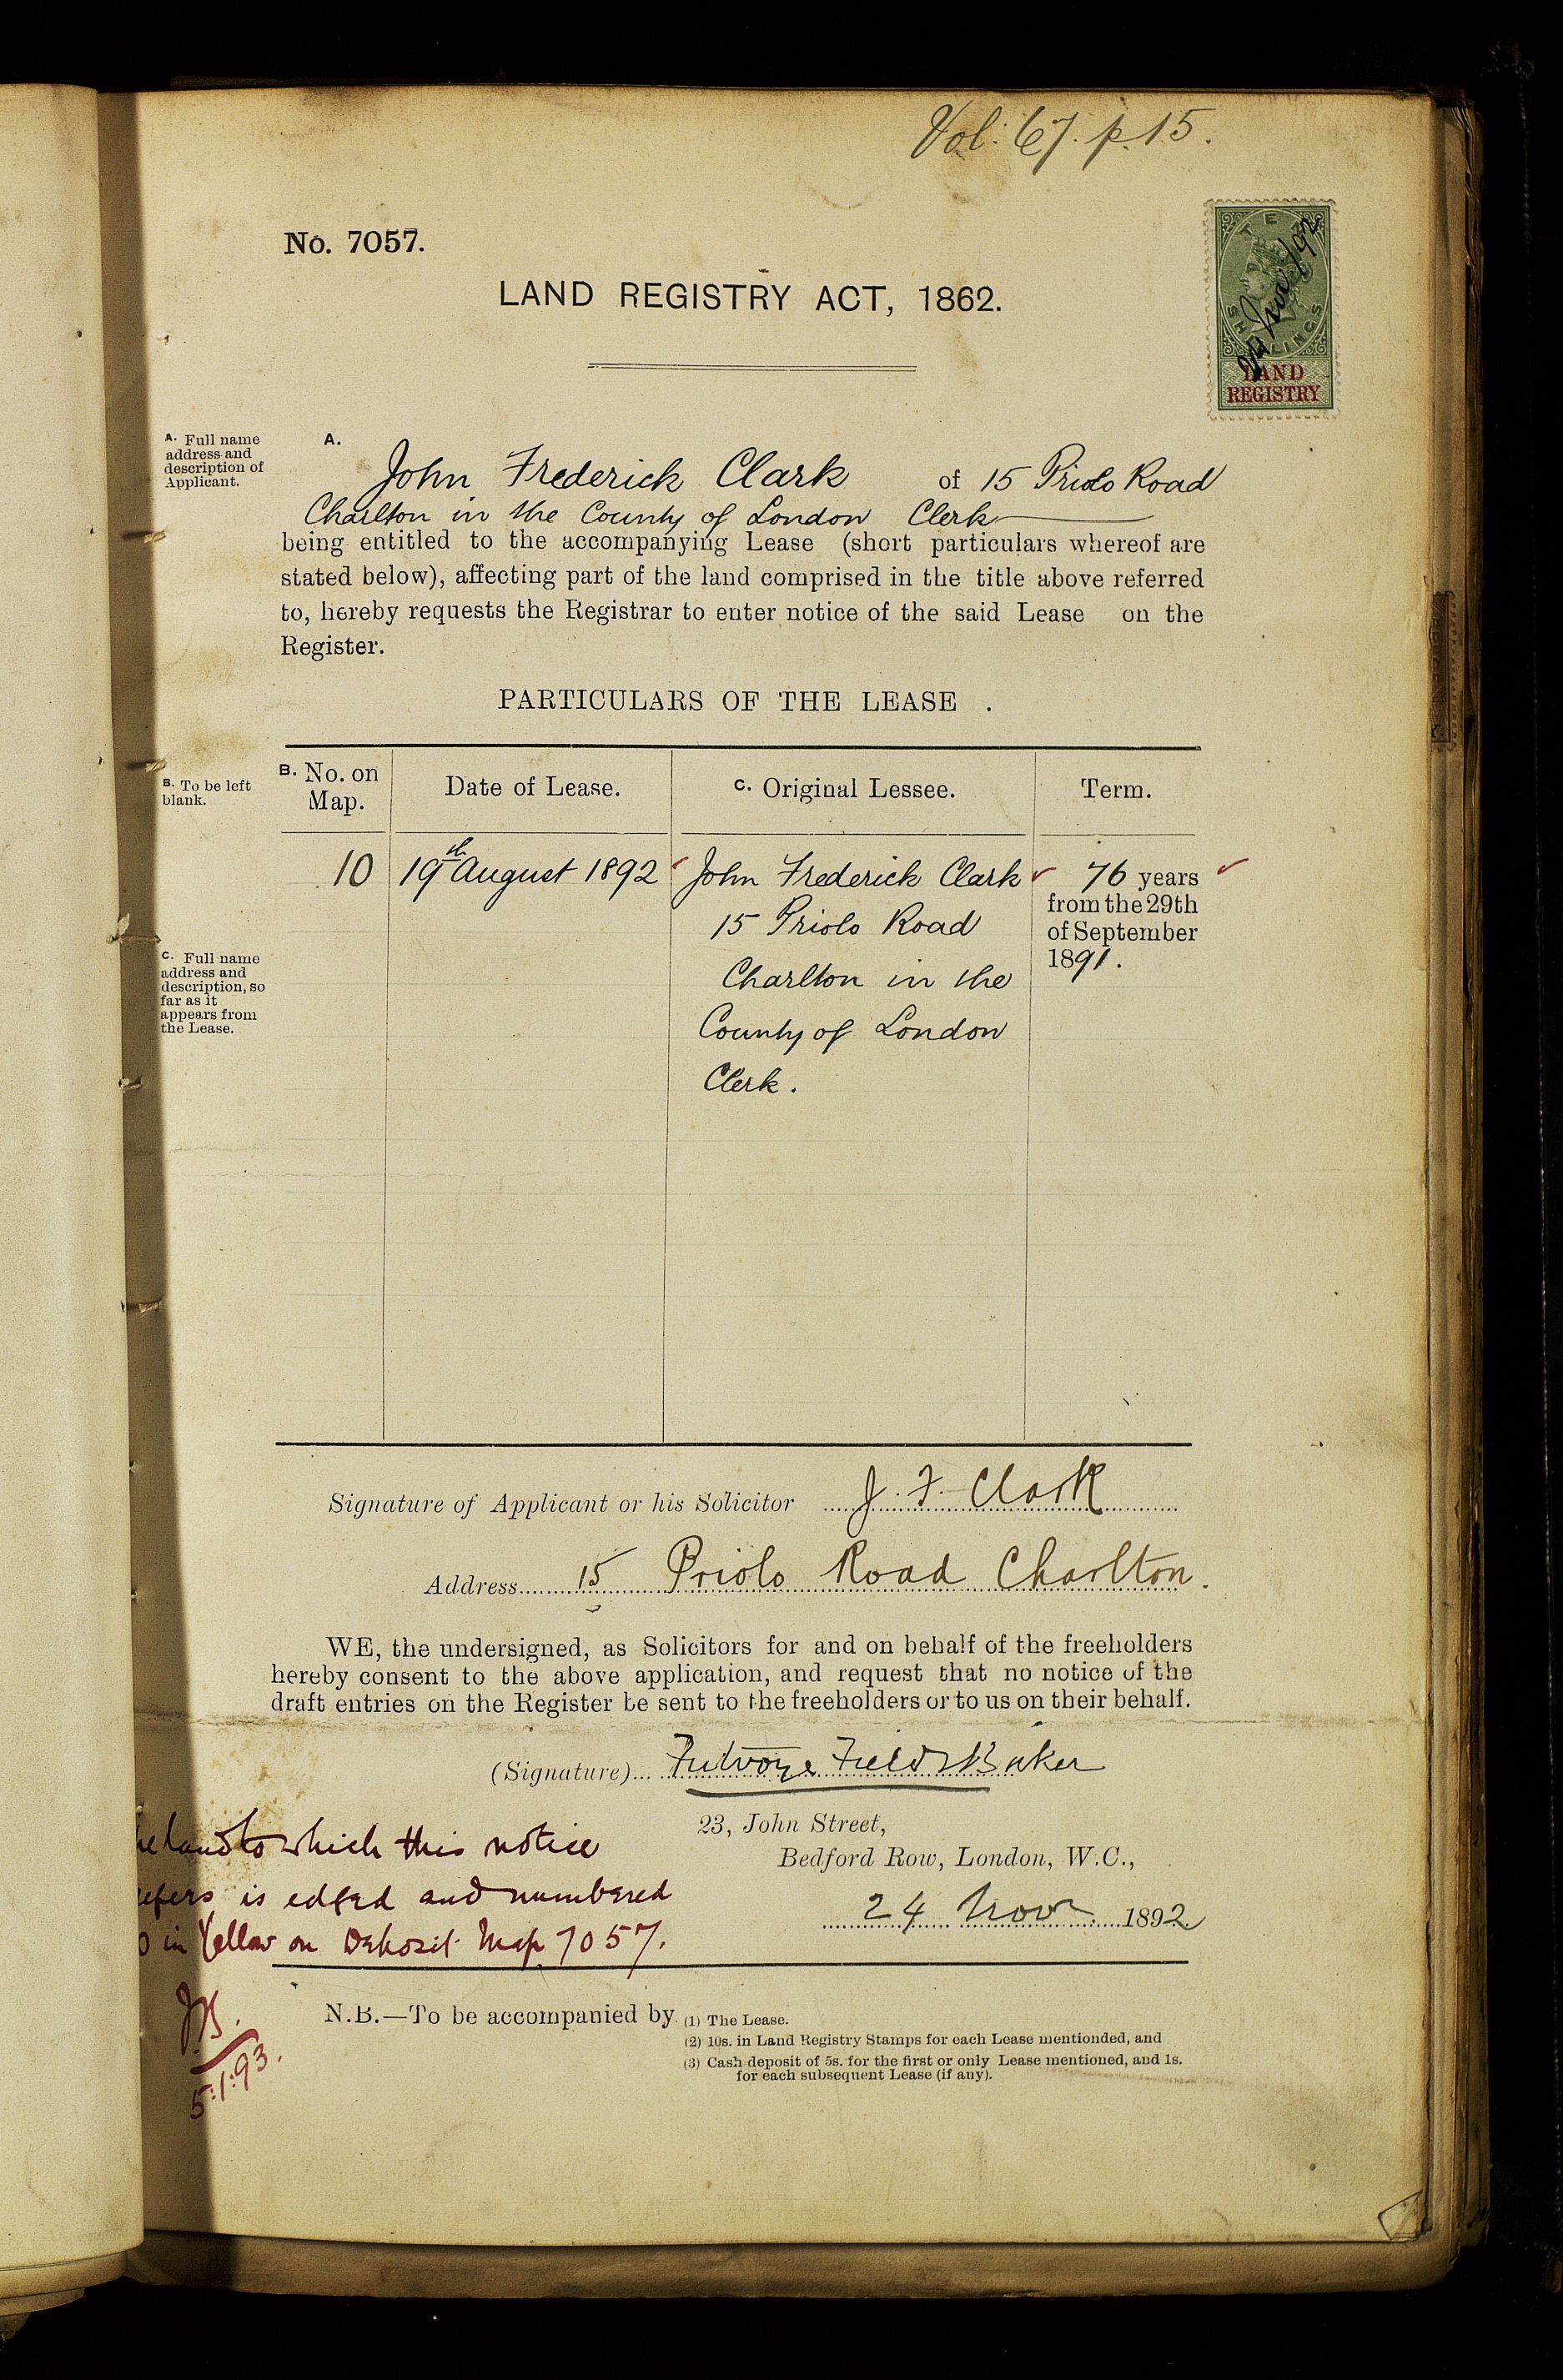 Vol: 67. p. 15.
No. 7057.
LAND REGISTRY ACT, 1862.
TEN
SHILLINGS
LAND
REGISTRY
24 Nov /92
A. Full name
address and
description of
Applicant.
A.
John Frederick Clark of 15 Priolo Road
Charlton in the County of London Clerk
being entitled to the accompanying Lease (short particulars whereof are
stated below), affecting part of the land comprised in the title above referred
to, hereby requests the Registrar to enter notice of the said Lease on the
Register.
PARTICULARS OF THE LEASE .
B. To be left
blank.
B. No. on
Map.
Date of Lease.
C. Original Lessee.
Term.
10
19th August 1892
John Frederick Clark
15 Priolo Road
Charlton in the
County of London
Clerk.
76 years
from the 29th
of September
1891.
C. Full name
address and
description, so
far as it
appears from
the Lease.
Signature of Applicant or his Solicitor J. F. Clark
Address 15 Priolo Road Charlton.
WE, the undersigned, as Solicitors for and on behalf of the freeholders
hereby consent to the above application, and request that no notice of the
draft entries on the Register be sent to the freeholders or to us on their behalf.
(Signature) Futvoye Field & Baker
23, John Street,
Bedford Row, London, W.C.,
24 Novr 1892
land to which this notice
refers is edged and numbered
in Yellow on Deposit Map 7057.
5:1:93.
N.B.—To be accompanied by (1) The Lease.
(2) 10s. in Land Registry Stamps for each Lease mentionded, and
(3) Cash deposit of 5s. for the first or only Lease mentioned, and 1s.
for each subsequent Lease (if any).